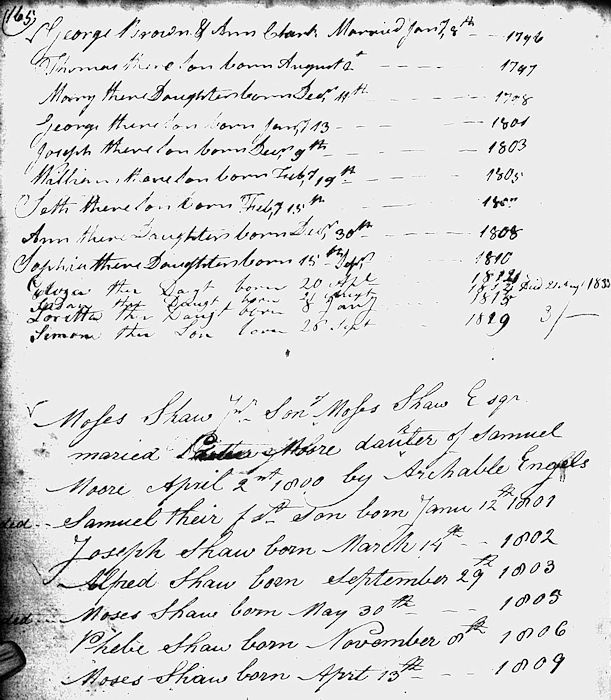 165
George Brown & Ann Clark Married Jany 8th 1796
Thomas there Son born August 2d 1797
Mary there Daughters born Decr 11th 1798
George there Son born Jany 13 1801
Joseph there Son born Decr 9th 1803
William there Son born Feby 19th 1805
Seth there Son born Feby 15th
Ann there Daughters born Decr 30th 1808
Sophia there Daughters born 15th 1810
Eliza ther Dagt born 20 Sept 1812 Died 21 Augt 1833
ther Daught born 1815
Loretta ther Daught born 8 Jany
Simon ther Son born 28 Sept 1819 3/—
Moses Shaw Jnr Son of Moses Shaw Esqr
maried Moore dauter of Samuel
Moore April 2nd 1800 by Archable Engels
ded Samuel their fst Son born Janu 12th 1801
Joseph Shaw born March 14th 1802
Alfred Shaw born September 29th 1803
ded Moses Shaw born May 30th 1805
Phebe Shaw born November 8th 1806
Moses Shaw born Aprt 13th 1809